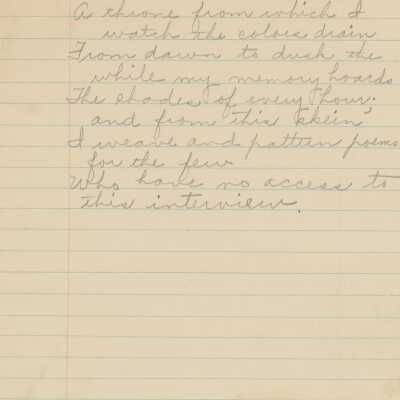 A throne from which I
watch the colors drain
From dawn to dusk the
while my memory hoards
The shades of every hour;
and from this skein,
I weave and pattern poems
for the few
Who have no access to
this interview.